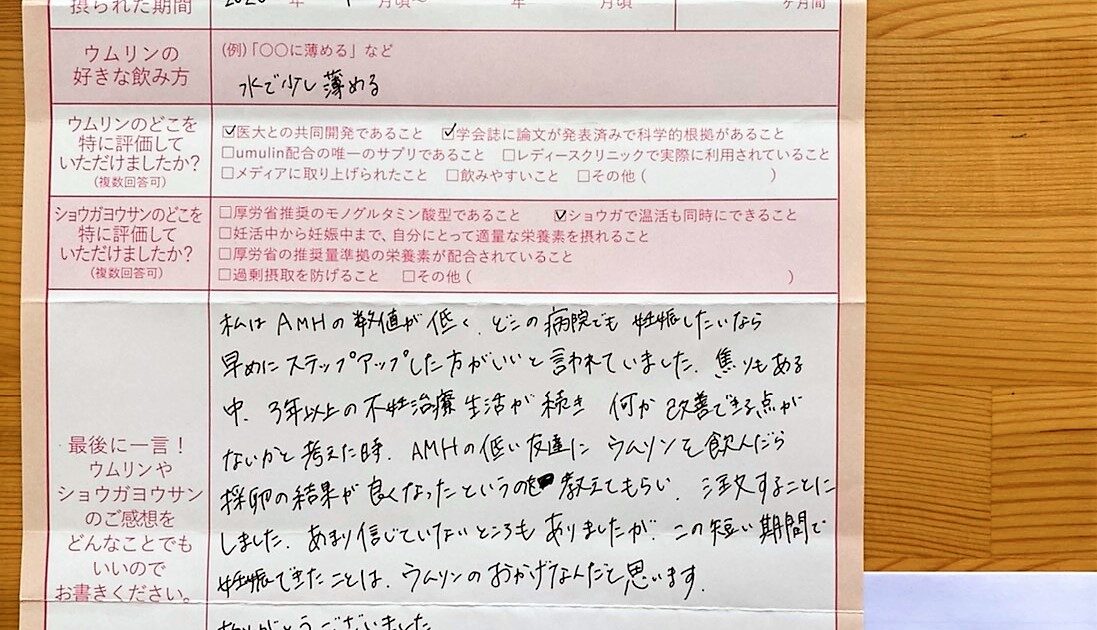 摂られた期間
年 月頃〜 年 月頃
ヶ月間
ウムリンの
好きな飲み方
(例)「〇〇に薄める」など
水で少し薄める
ウムリンのどこを
特に評価して
いただけましたか?
(複数回答可)
☑医大との共同開発であること ☑学会誌に論文が発表済みで科学的根拠があること
☐umulin配合の唯一のサプリであること ☐レディースクリニックで実際に利用されていること
☐メディアに取り上げられたこと ☐飲みやすいこと ☐その他( )
ショウガヨウサンのどこを
特に評価して
いただけましたか?
(複数回答可)
☐厚労省推奨のモノグルタミン酸型であること ☑ショウガで温活も同時にできること
☐妊活中から妊娠中まで、自分にとって適量な栄養素を摂れること
☐厚労省の推奨量準拠の栄養素が配合されていること
☐過剰摂取を防げること ☐その他( )
最後に一言!
ウムリンや
ショウガヨウサン
のご感想を
どんなことでも
いいので
お書きください。
私はAMHの数値が低く、どこの病院でも妊娠したいなら
早めにステップアップした方がいいと言われていました。焦りもある
中、3年以上の不妊治療生活が続き 何か改善できる点が
ないかと考えた時、AMHの低い友達に ウムリンを飲んだら
採卵の結果が良くなったというのを教えてもらい、注文することに
しました。あまり信じていないところもありましたが、この短い期間で
妊娠できたことは、ウムリンのおかげなんだと思います。
ありがとうございました